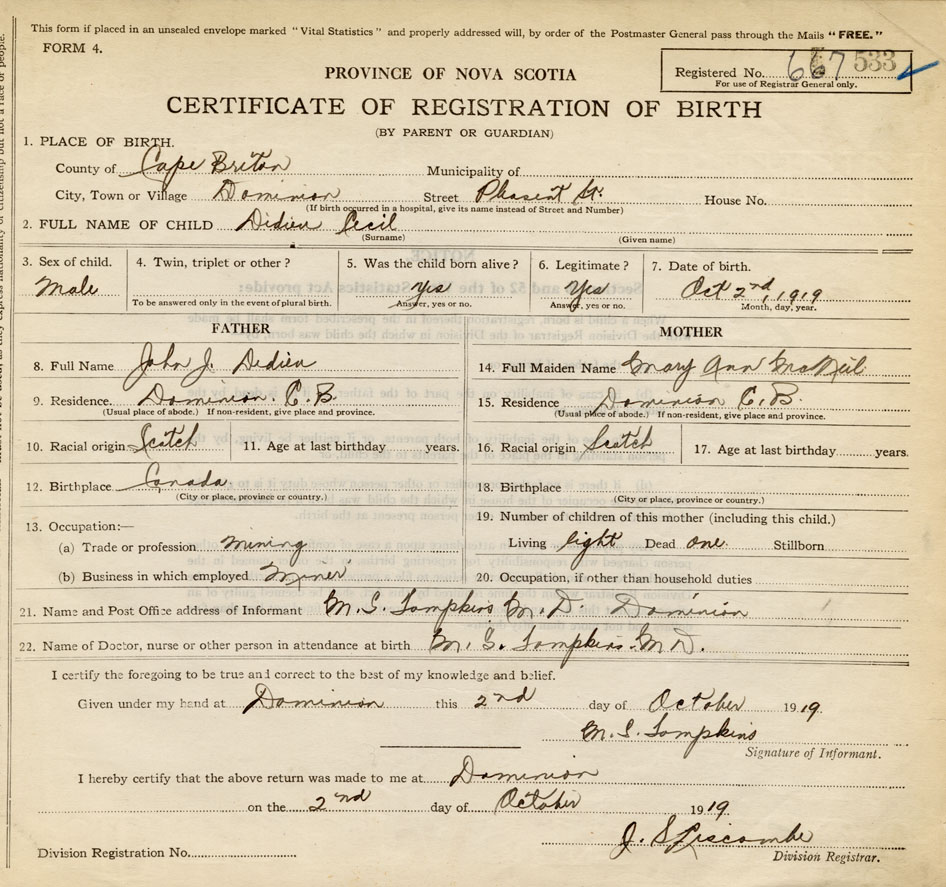 This form if placed in an unsealed envelope marked "Vital Statistics" and properly addressed will, by order of the Postmaster General pass through the Mails "FREE."
FORM 4.
Registered No. 667 533
For use of Registrar General only.
PROVINCE OF NOVA SCOTIA
CERTIFICATE OF REGISTRATION OF BIRTH
(BY PARENT OR GUARDIAN)
1. PLACE OF BIRTH.
County of Cape Briton Municipality of
City, Town or Village Dominion Street Pleasant St. House No.
(If birth occurred in a hospital, give its name instead of Street and Number)
2. FULL NAME OF CHILD Didieu Cecil
(Surname) (Given name)
3. Sex of child. 4. Twin, triplet or other? 5. Was the child born alive? 6. Legitimate? 7. Date of birth.
Male yes Yes Oct 2nd, 1919
To be answered only in the event of plural birth. Answer, yes or no. Answer, yes or no. Month, day, year.
FATHER MOTHER
8. Full Name John J. Didieu 14. Full Maiden Name Mary Ann McNeil
9. Residence. Dominion C.B. 15. Residence Dominion C.B.
(Usual place of abode.) If non-resident, give place and province. (Usual place of abode.) If non-resident, give place and province.
10. Racial origin Scotch 11. Age at last birthday years. 16. Racial origin Scotch 17. Age at last birthday years.
12. Birthplace Canada 18. Birthplace
(City or place, province or country.) (City or place, province or country.)
13. Occupation:— 19. Number of children of this mother (including this child.)
(a) Trade or profession mining Living eight Dead one Stillborn
(b) Business in which employed Miner 20. Occupation, if other than household duties
21. Name and Post Office address of Informant M. S. Tompkins M. D. Dominion
22. Name of Doctor, nurse or other person in attendance at birth M. S. Tompkins. M D.
I certify the foregoing to be true and correct to the best of my knowledge and belief.
Given under my hand at Dominion this 2nd day of October 1919.
M. S. Tompkins
Signature of Informant.
I hereby certify that the above return was made to me at Dominion
on the 2nd day of October 1919.
J. S. Liscombe
Division Registration No. Division Registrar.